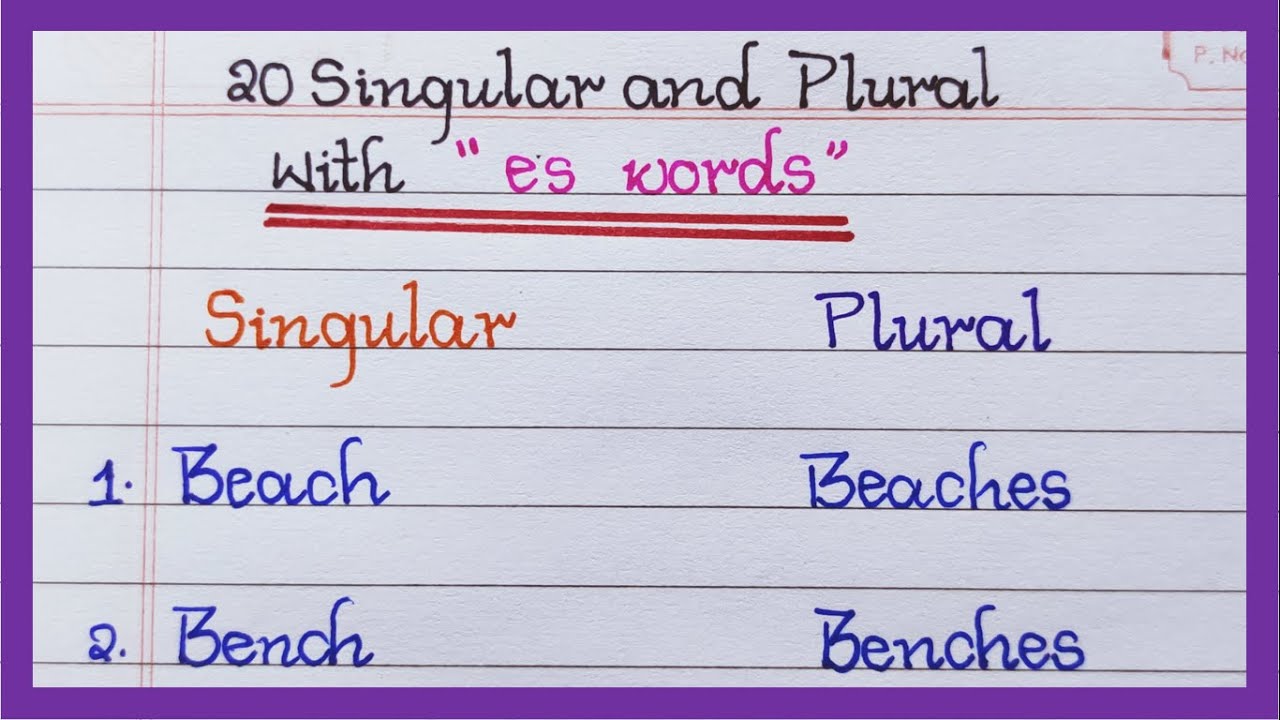 P. No
20 Singular and Plural
With "es words"
Singular Plural
1. Beach Beaches
2. Bench Benches